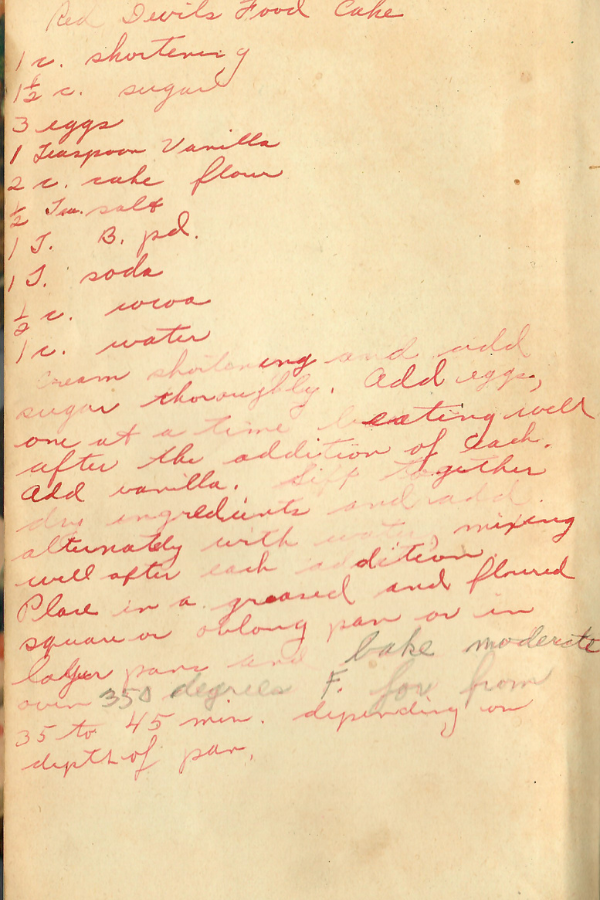 Red Devils Food Cake
1 c. shortening
1 1/2 c. sugar
3 eggs
1 Teaspoon Vanilla
2 c. cake flour
1/2 Tea. salt
1 T. B. pd.
1 T. soda
1/2 c. cocoa
1 c. water
Cream shortening and add
sugar thoroughly. Add eggs,
one at a time beating well
after the addition of each.
Add vanilla. Sift together
dry ingredients and add
alternately with water, mixing
well after each addition.
Place in a greased and floured
square or oblong pan or in
layer pans and bake moderate
oven 350 degrees F. for from
35 to 45 min. depending on
depth of pan.